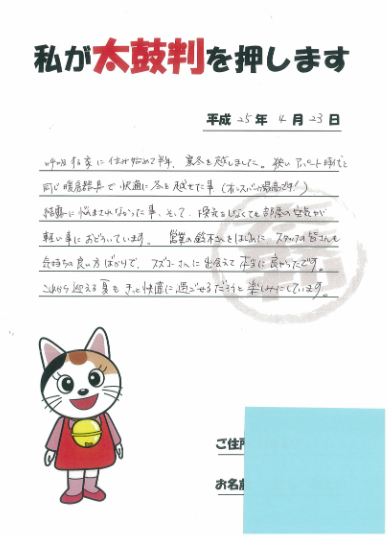 私が太鼓判を押します
平成 25 年 4 月 23 日
呼吸する家に住み始めて半年、真冬を越しました。狭いアパート時代と
同じ暖房器具で快適に冬を越せた事(ホッスパーは最高です!)
結露に悩まされなかった事、そして、換気をしなくても部屋の空気が
軽い事におどろいています。営業の鈴木さんをはじめに、スタッフの皆さんも
気持ちの良い方ばかりで、スズコーさんに出会えて本当に良かったです。
これから迎える夏も、きっと快適に過ごせるだろうと楽しみにしています。
ご住所
お名前